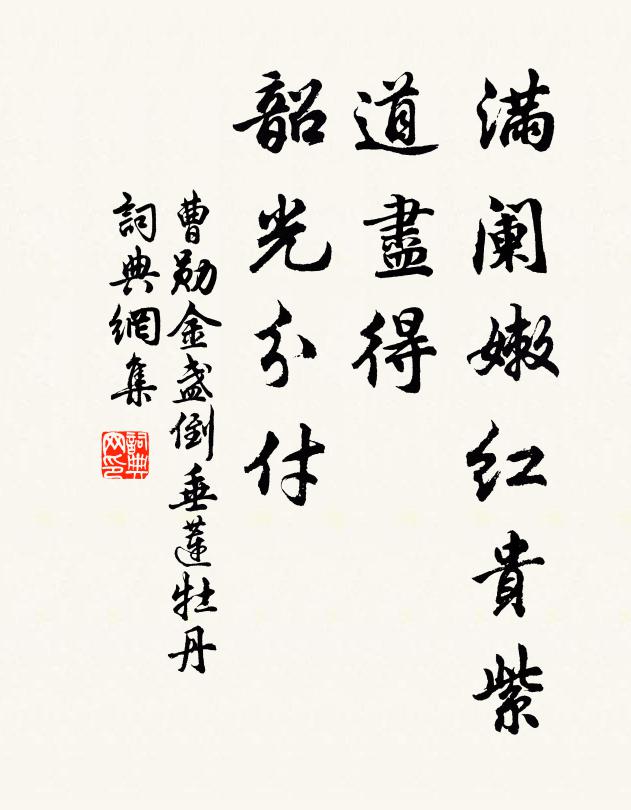 滿闌嫩红貴紫
道盡得
韶光分付
曹勛金盞倒垂蓮牡丹
詞典網集
詞典
网印